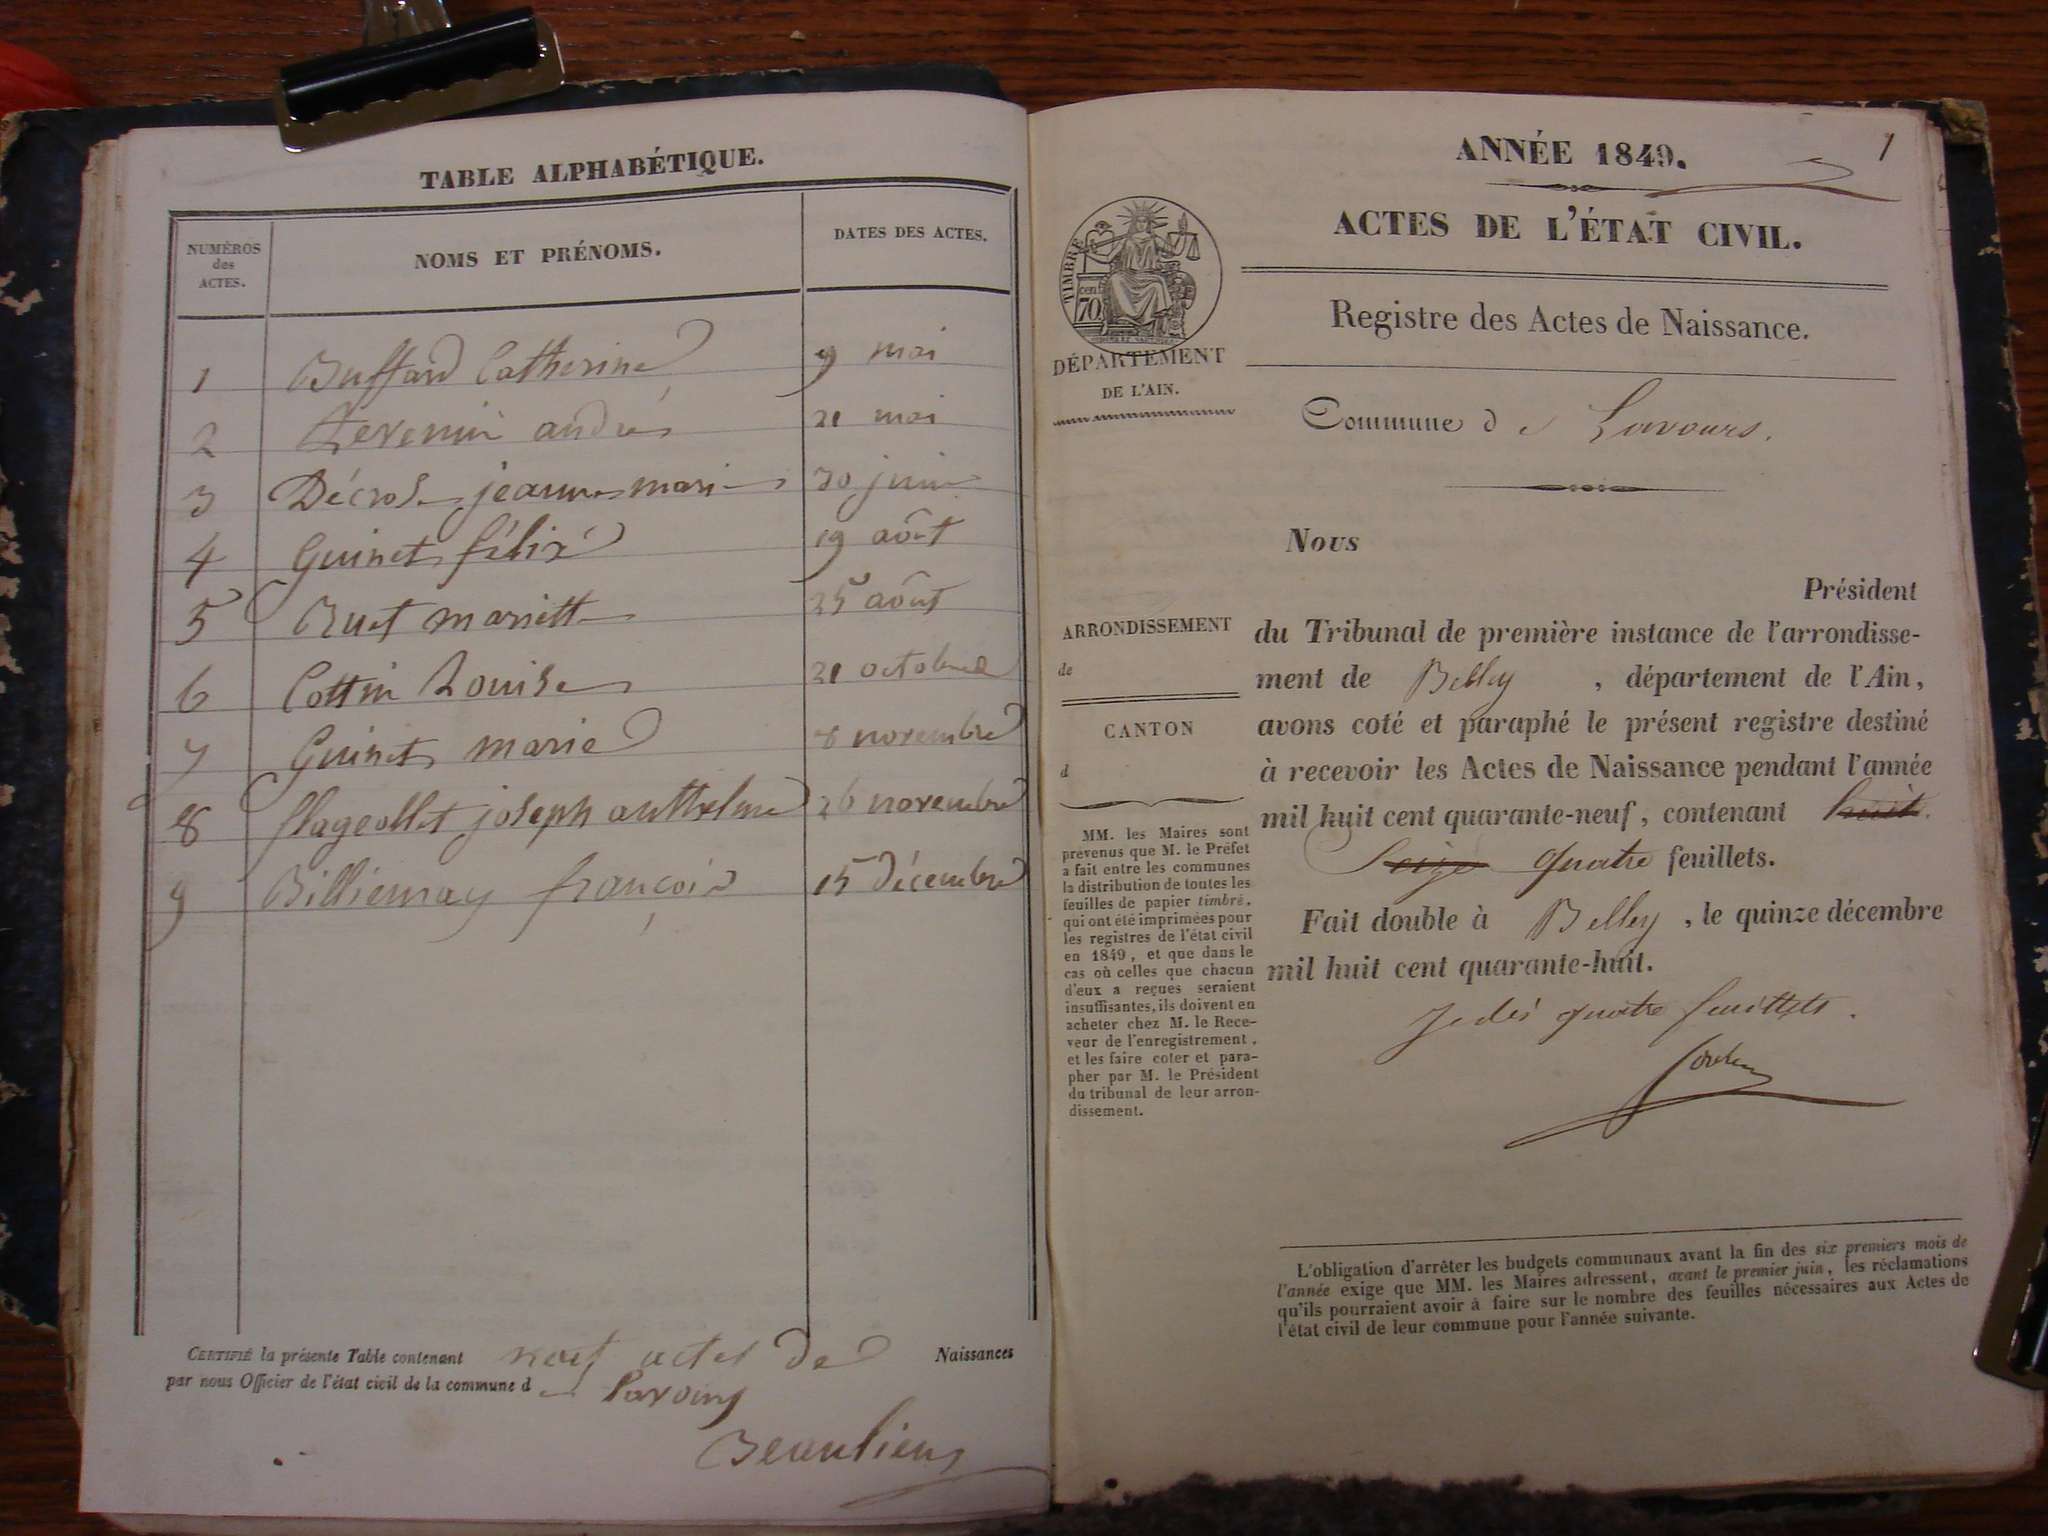 TABLE ALPHABÉTIQUE.
NUMÉROS
des
ACTES.
NOMS ET PRÉNOMS.
DATES DES ACTES.
1 Buffard Catherine 9 mai
2 andré 21 mai
3 Décrose jeanne marie 30 juin
4 Guinet félix 19 août
5 Ruet mariette 25 août
6 Cottin Louise 21 octobre
7 Guinet marie 8 novembre
8 flageollet joseph anthelme 26 novembre
9 Billiemay françois 15 décembre
CERTIFIÉ la présente Table contenant neuf actes de Naissances
par nous Officier de l'état civil de la commune de Lavours
Beaulieu
1
ANNÉE 1849.
ACTES DE L'ÉTAT CIVIL.
Registre des Actes de Naissance.
TIMBRE
70 cent
DÉPARTEMENT
DE L'AIN.
Commune de Lavours.
Nous
Président
ARRONDISSEMENT
de
CANTON
d
du Tribunal de première instance de l'arrondisse-
ment de Belley , département de l'Ain,
avons coté et paraphé le présent registre destiné
à recevoir les Actes de Naissance pendant l'année
mil huit cent quarante-neuf, contenant huit.
Seize quatre feuillets.
Fait double à Belley , le quinze décembre
mil huit cent quarante-huit.
Je dis quatre feuillets.
MM. les Maires sont
prévenus que M. le Préfet
a fait entre les communes
la distribution de toutes les
feuilles de papier timbré,
qui ont été imprimées pour
les registres de l'état civil
en 1849, et que dans le
cas où celles que chacun
d'eux a reçues seraient
insuffisantes, ils doivent en
acheter chez M. le Rece-
veur de l'enregistrement,
et les faire coter et para-
pher par M. le Président
du tribunal de leur arron-
dissement.
L'obligation d'arrêter les budgets communaux avant la fin des six premiers mois de
l'année exige que MM. les Maires adressent, avant le premier juin, les réclamations
qu'ils pourraient avoir à faire sur le nombre des feuilles nécessaires aux Actes de
l'état civil de leur commune pour l'année suivante.